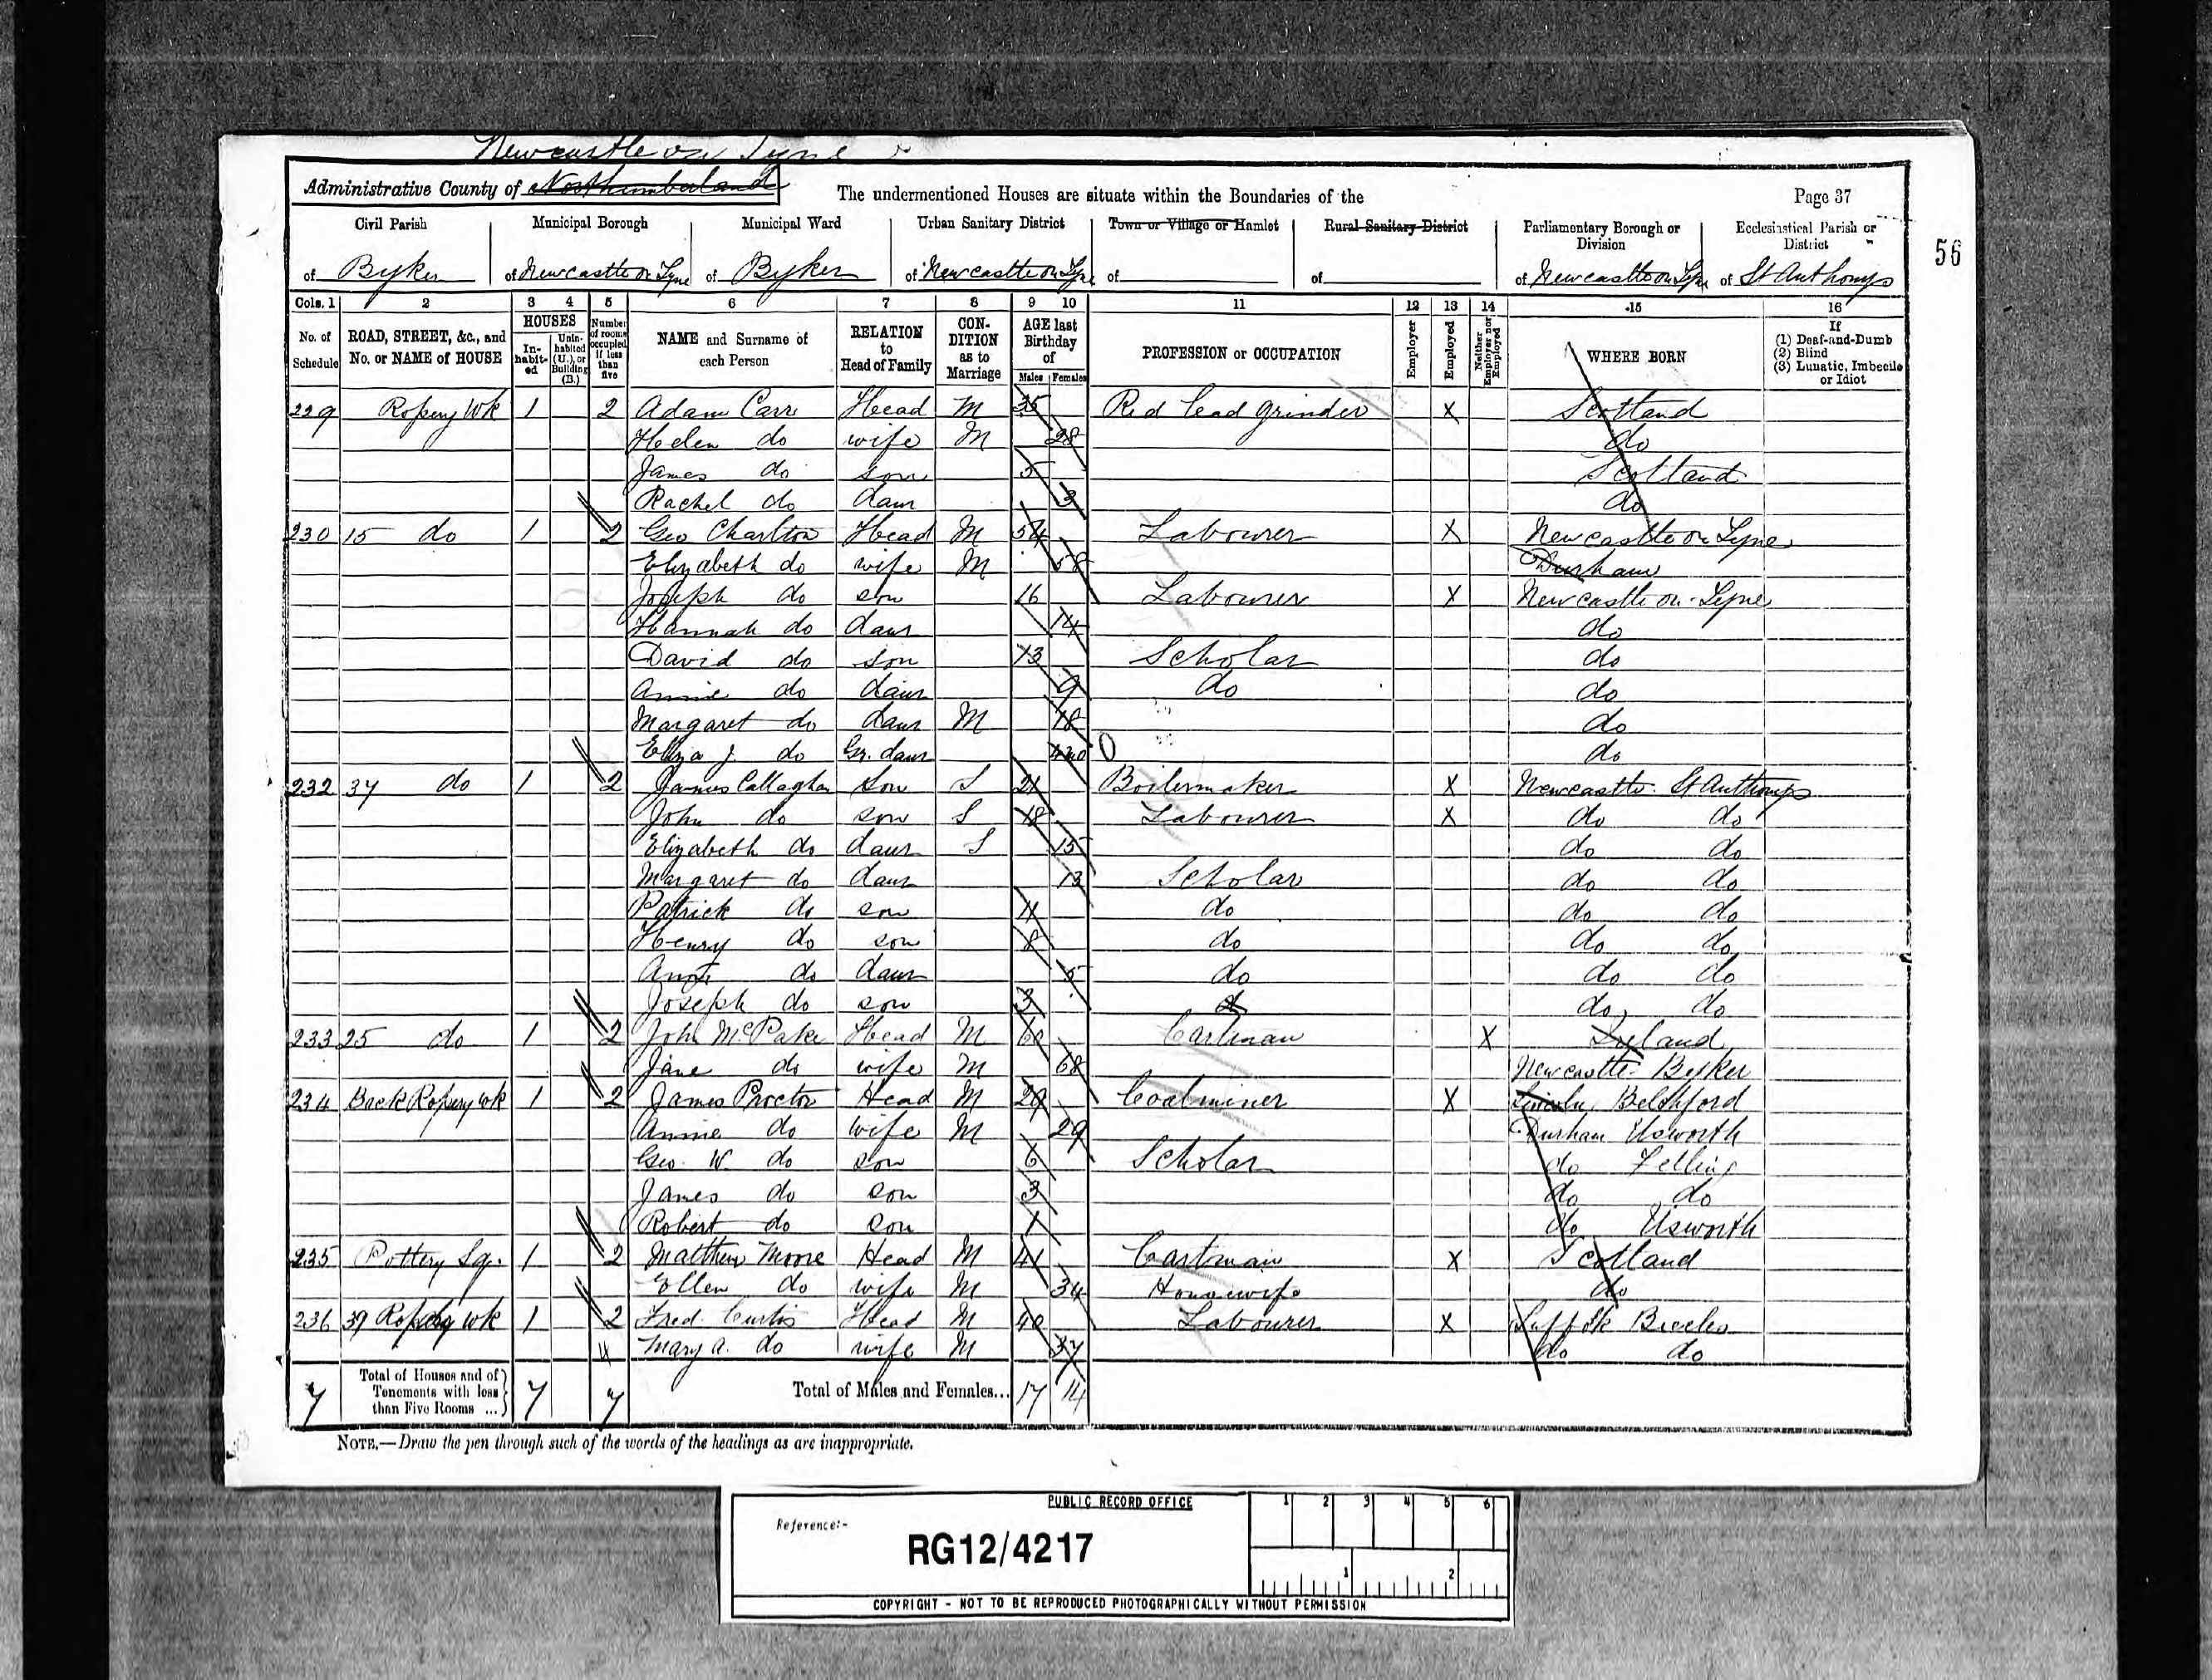 Newcastle on Tyne
Administrative County of Northumberland The undermentioned Houses are situate within the Boundaries of the Page 37
Civil Parish Municipal Borough Municipal Ward Urban Sanitary District Town or Village or Hamlet Rural Sanitary District Parliamentary Borough or Division Ecclesiastical Parish or District
of Byker of Newcastle on Tyne of Byker of Newcastle on Tyne of of of Newcastle on Tyne of St Anthonys
56
Cols. 1 2 3 4 5 6 7 8 9 10 11 12 13 14 15 16
No. of Schedule ROAD, STREET, &c., and No. or NAME of HOUSE HOUSES Inhabited Uninhabited (U.), or Building (B.) Number of rooms occupied if less than five NAME and Surname of each Person RELATION to Head of Family CONDITION as to Marriage AGE last Birthday of Males Females PROFESSION or OCCUPATION Employer Employed Neither Employer nor Employed WHERE BORN If (1) Deaf-and-Dumb (2) Blind (3) Lunatic, Imbecile or Idiot
229 Ropery Wk 1 2 Adam Carr Head M 35 Red lead grinder X Scotland
Helen do wife M 28 do
James do son 5 Scotland
Rachel do daur 2 do
230 15 do 1 2 Geo Charlton Head M 54 Labourer X Newcastle on Tyne
Elizabeth do wife M 58 Durham
Joseph do son 16 Labourer X Newcastle on Tyne
Hannah do daur 14 do
David do son 13 Scholar do
Annie do daur 9 do do
Margaret do daur M 18 do
Eliza J. do Gr. daur 0 do
232 37 do 1 2 James Callaghan son S 21 Boilermaker X Newcastle St Anthonys
John do son S 18 Labourer X do do
Elizabeth do daur S 15 do do
Margaret do daur 13 Scholar do do
Patrick do son 11 do do do
Henry do son 8 do do do
do daur 5 do do do
Joseph do son 3 do do do
233 25 do 1 2 John McPake Head M 60 Cartman X Ireland
Jane do wife M 68 Newcastle Byker
234 Back Ropery Wk 1 2 James Proctor Head M 29 Coalminer X Lincoln, Belchford
Annie do wife M 29 Durham Usworth
Geo. W. do son 6 Scholar do Felling
James do son 3 do do
Robert do son 1 do Usworth
235 Pottery Sq. 1 2 Matthew Moore Head M 41 Cartman X Scotland
Ellen do wife M 34 Housewife do
236 39 Ropery Wk 1 2 Fred. Curtis Head M 40 Labourer X Suffolk Beccles
Mary A. do wife M 37 do do
7 Total of Houses and of Tenements with less than Five Rooms ... 7 7 Total of Males and Females... 17 14
NOTE.—Draw the pen through such of the words of the headings as are inappropriate.
PUBLIC RECORD OFFICE
Reference:-
RG12/4217
1 2 3 4 5 6
1 2
COPYRIGHT - NOT TO BE REPRODUCED PHOTOGRAPHICALLY WITHOUT PERMISSION